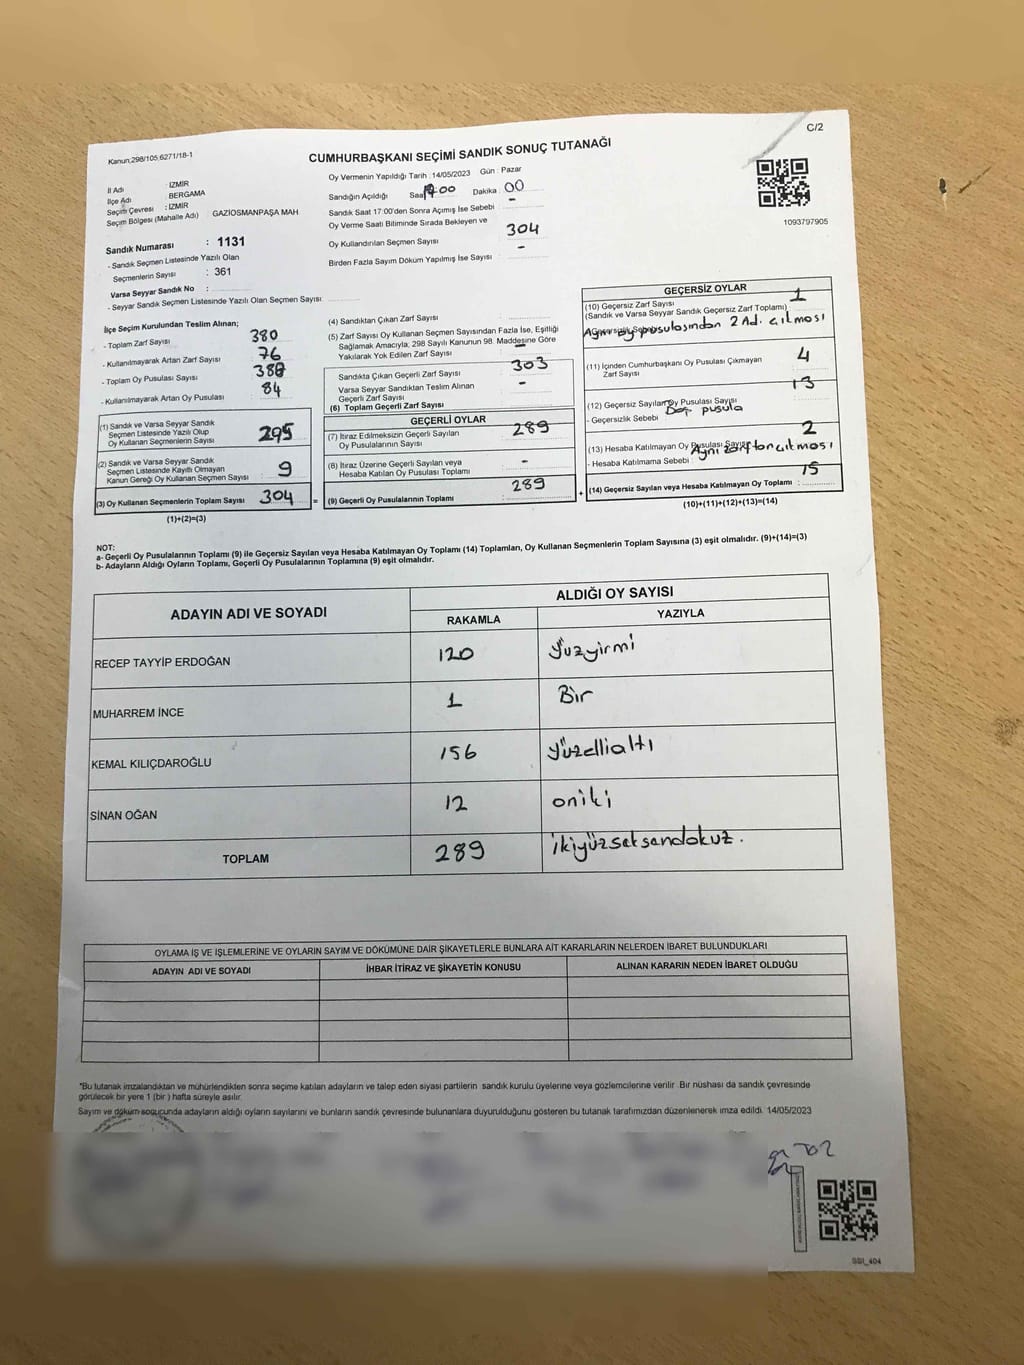 C/2
Kanun;298/105;6271/18-1
CUMHURBAŞKANI SEÇİMİ SANDIK SONUÇ TUTANAĞI
İl Adı : İZMİR
İlçe Adı : BERGAMA
Seçim Çevresi : İZMİR
Seçim Bölgesi (Mahalle Adı) GAZİOSMANPAŞA MAH
Sandık Numarası : 1131
- Sandık Seçmen Listesinde Yazılı Olan
Seçmenlerin Sayısı : 361
Varsa Seyyar Sandık No :
- Seyyar Sandık Seçmen Listesinde Yazılı Olan Seçmen Sayısı
Oy Vermenin Yapıldığı Tarih :14/05/2023 Gün : Pazar
Sandığın Açıldığı Saat 17:00 Dakika : 00
Sandık Saat 17:00'den Sonra Açımış İse Sebebi : -
Oy Verme Saati Bitiminde Sırada Bekleyen ve
Oy Kullandırılan Seçmen Sayısı 304
Birden Fazla Sayım Döküm Yapılmış İse Sayısı : -
1093797905
İlçe Seçim Kurulundan Teslim Alınan;
- Toplam Zarf Sayısı 380
- Kullanılmayarak Artan Zarf Sayısı 76
- Toplam Oy Pusulası Sayısı 388
- Kullanılmayarak Artan Oy Pusulası 84
(1) Sandık ve Varsa Seyyar Sandık
Seçmen Listesinde Yazılı Olup
Oy Kullanan Seçmenlerin Sayısı 295
(2) Sandık ve Varsa Seyyar Sandık
Seçmen Listesinde Kayıtlı Olmayan
Kanun Gereği Oy Kullanan Seçmen Sayısı 9
(3) Oy Kullanan Seçmenlerin Toplam Sayısı 304 =
(1)+(2)=(3)
(4) Sandıktan Çıkan Zarf Sayısı :
(5) Zarf Sayısı Oy Kullanan Seçmen Sayısından Fazla İse, Eşitliği
Sağlamak Amacıyla, 298 Sayılı Kanunun 98. Maddesine Göre
Yakılarak Yok Edilen Zarf Sayısı : -
Sandıkta Çıkan Geçerli Zarf Sayısı : 303
Varsa Seyyar Sandıktan Teslim Alınan
Geçerli Zarf Sayısı : -
(6) Toplam Geçerli Zarf Sayısı
GEÇERLİ OYLAR
(7) İtiraz Edilmeksizin Geçerli Sayılan
Oy Pusulalarının Sayısı : 289
(8) İtiraz Üzerine Geçerli Sayılan veya
Hesaba Katılan Oy Pusulası Toplamı : -
(9) Geçerli Oy Pusulalarının Toplamı : 289 +
GEÇERSİZ OYLAR
(10) Geçersiz Zarf Sayısı 1
(Sandık ve Varsa Seyyar Sandık Geçersiz Zarf Toplamı)
- Geçersizlik Sebebi Aynı oy pusulasından 2 Ad. çıkması
(11) İçinden Cumhurbaşkanı Oy Pusulası Çıkmayan
Zarf Sayısı 4
(12) Geçersiz Sayılan Oy Pusulası Sayısı 13
- Geçersizlik Sebebi pusula
(13) Hesaba Katılmayan Oy Pusulası Sayısı 2
- Hesaba Katılmama Sebebi : Aynı zarftan çıkması
(14) Geçersiz Sayılan veya Hesaba Katılmayan Oy Toplamı : 15
(10)+(11)+(12)+(13)=(14)
NOT:
a- Geçerli Oy Pusulalarının Toplamı (9) ile Geçersiz Sayılan veya Hesaba Katılmayan Oy Toplamı (14) Toplamları, Oy Kullanan Seçmenlerin Toplam Sayısına (3) eşit olmalıdır. (9)+(14)=(3)
b- Adayların Aldığı Oyların Toplamı, Geçerli Oy Pusulalarının Toplamına (9) eşit olmalıdır.
ADAYIN ADI VE SOYADI ALDIĞI OY SAYISI
RAKAMLA YAZIYLA
RECEP TAYYİP ERDOĞAN 120 Yüzyirmi
MUHARREM İNCE 1 Bir
KEMAL KILIÇDAROĞLU 156 Yüzellialtı
SİNAN OĞAN 12 oniki
TOPLAM 289 ikiyüzseksendokuz.
OYLAMA İŞ VE İŞLEMLERİNE VE OYLARIN SAYIM VE DÖKÜMÜNE DAİR ŞİKAYETLERLE BUNLARA AİT KARARLARIN NELERDEN İBARET BULUNDUKLARI
ADAYIN ADI VE SOYADI İHBAR İTİRAZ VE ŞİKAYETİN KONUSU ALINAN KARARIN NEDEN İBARET OLDUĞU
*Bu tutanak imzalandıktan ve mühürlendikten sonra seçime katılan adayların ve talep eden siyasi partilerin sandık kurulu üyelerine veya gözlemcilerine verilir. Bir nüshası da sandık çevresinde
görülecek bir yere 1 (bir ) hafta süreyle asılır.
Sayım ve döküm sonucunda adayların aldığı oyların sayılarını ve bunların sandık çevresinde bulunanlara duyurulduğunu gösteren bu tutanak tarafımızdan düzenlenerek imza edildi. 14/05/2023
SSI_404